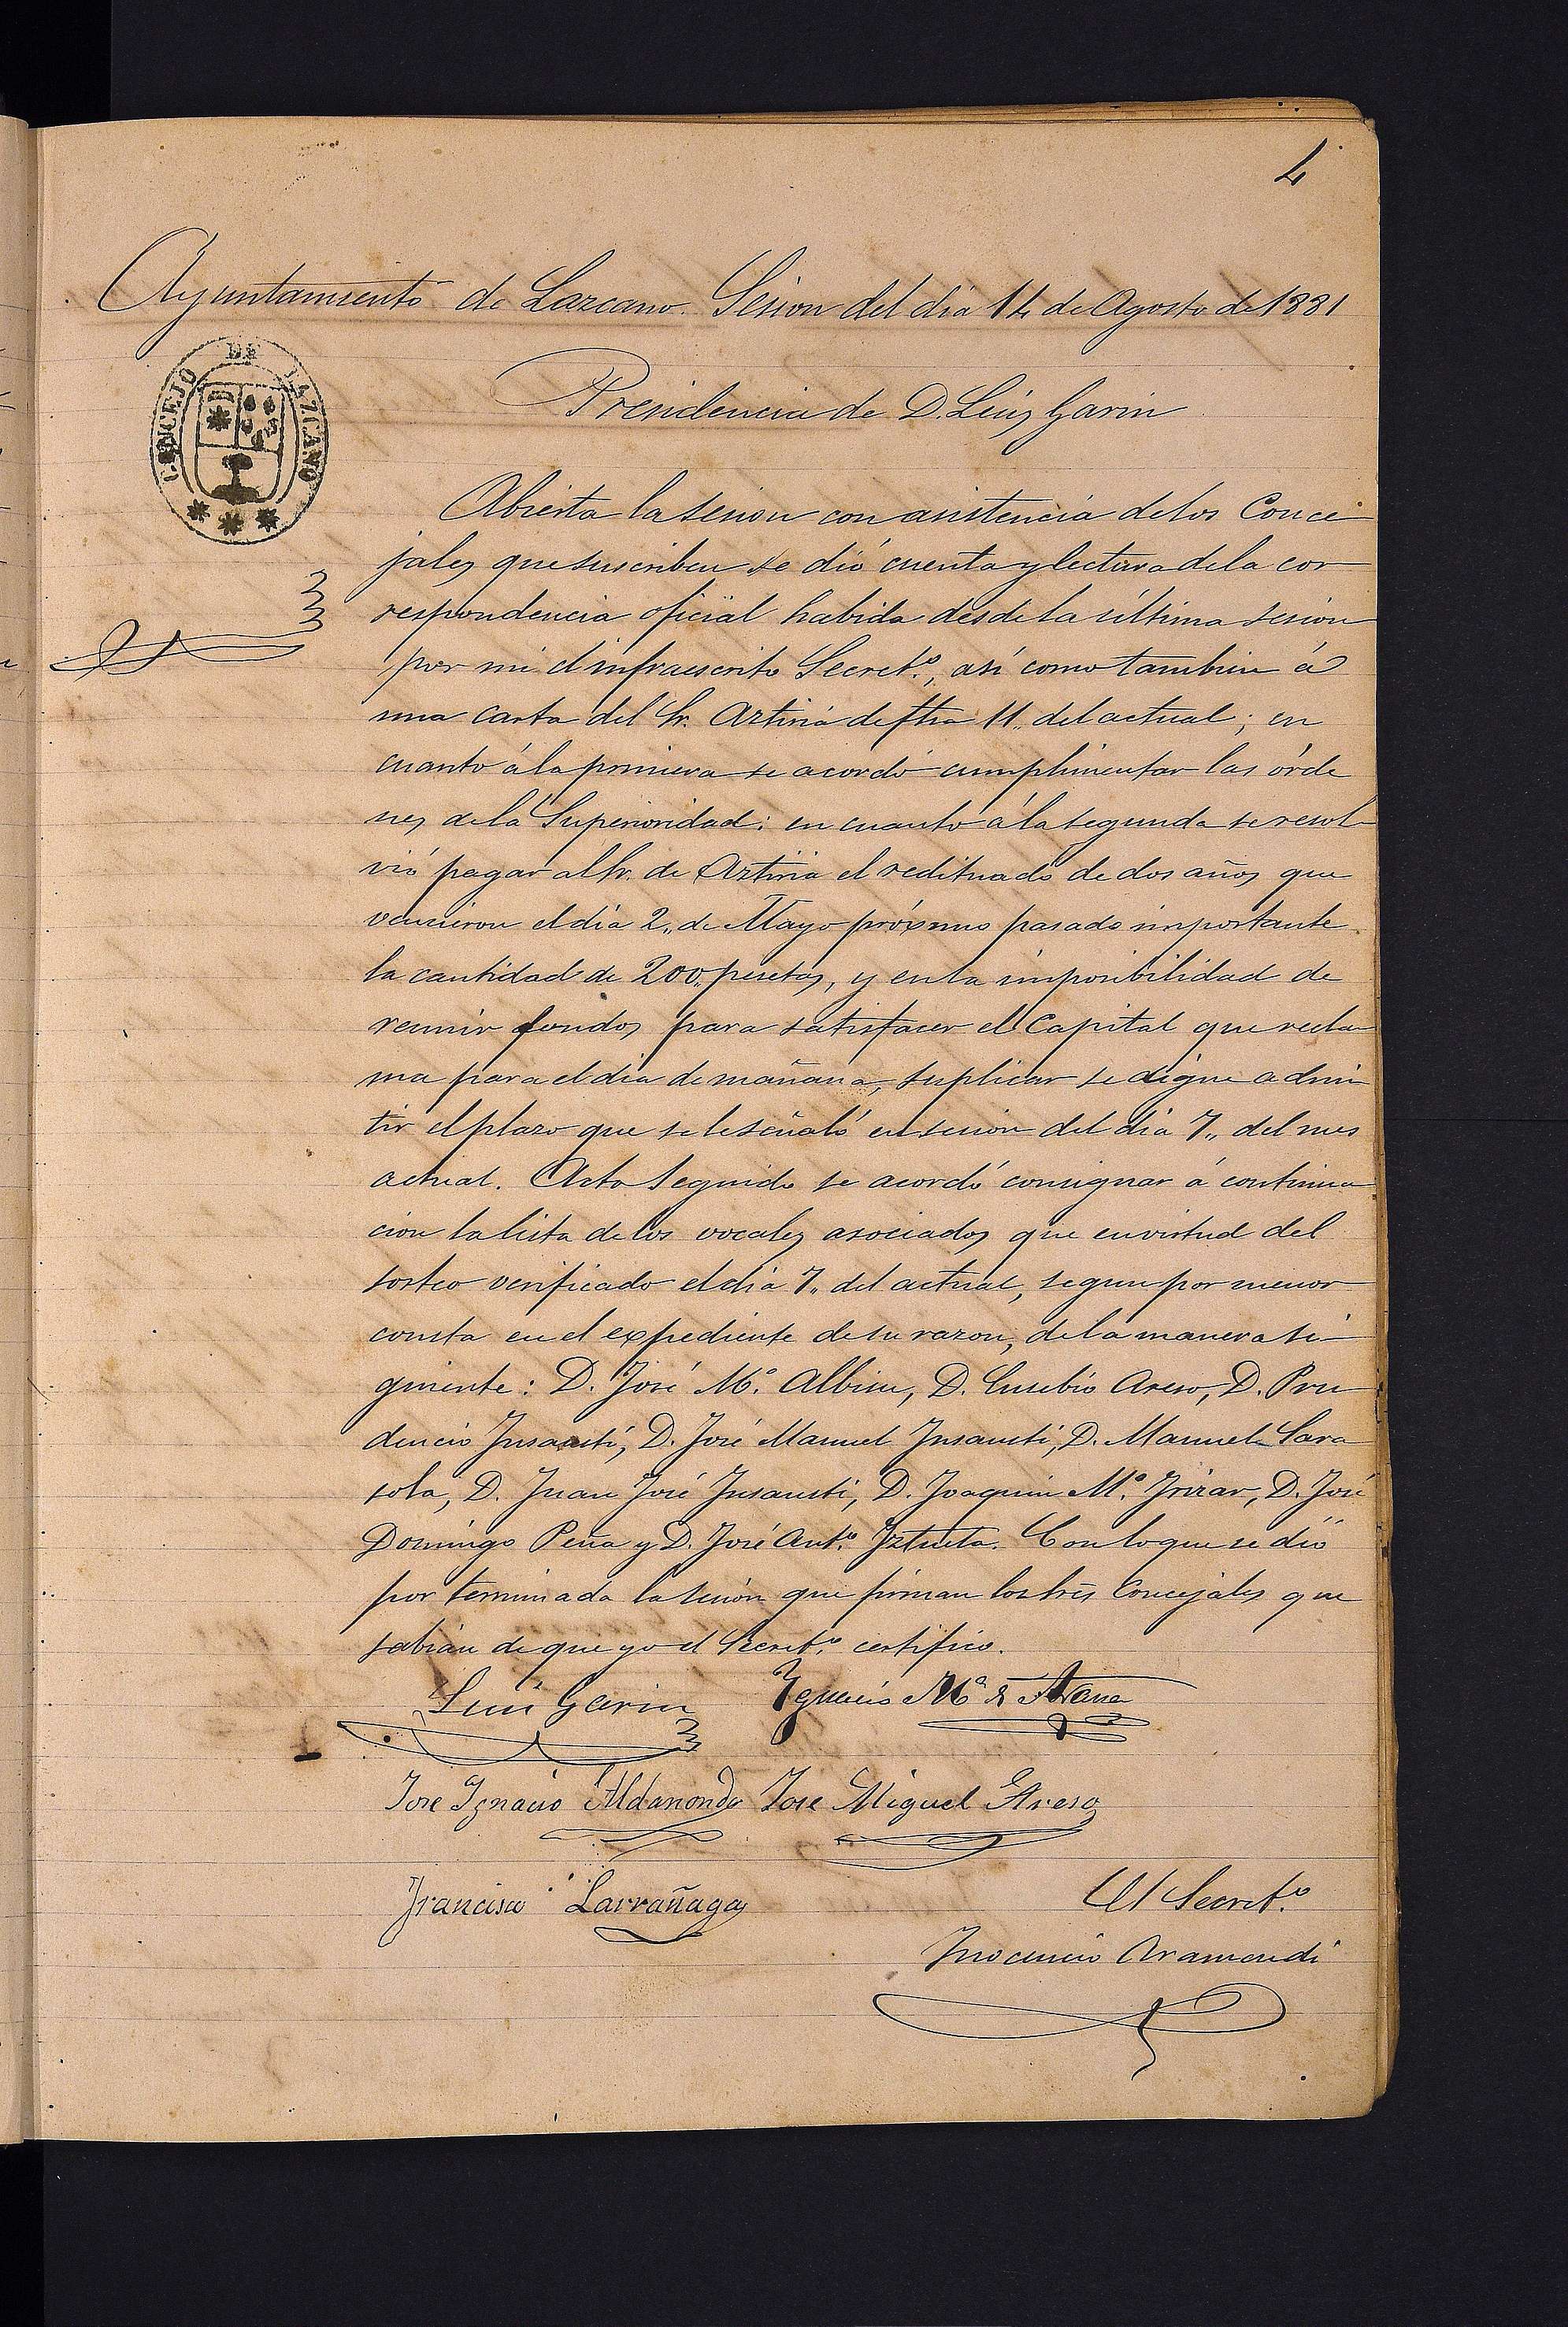 4
Ayuntamiento de Lazcano. Sesion del dia 14 de Agosto de 1881
CONCEJO DE LAZCANO
Presidencia de D. Luis Garin
Abierta la sesion con asistencia de los Conce
jales que suscriben se dió cuenta y lectura de la cor
respondencia oficial habida desde la última sesion
por mi el infraescrito Secret.º, así como tambien á
una carta del Sr. Aztiria de fha 11,, del actual; en
cuanto á la primera se acordó cumplimentar las órde
nes de la Superioridad: en cuanto á la segunda se resol
vió pagar al Sr. de Aztiria el redituado de dos años que
vencieron el dia 2,, de Mayo próximo pasado importante
la cantidad de 200,, pesetas, y en la imposibilidad de
reunir fondos para satisfacer el Capital que recla
ma para el dia de mañana, suplicar se digne admi
tir el plazo que se le señaló en sesion del dia 7,, del mes
actual. Acto seguido se acordó consignar á continua
cion la lista de los vocales asociados que en virtud del
sorteo verificado el dia 7,, del actual, segun por menor
consta en el expediente de su razon, de la manera si
guiente: D. José M.ª Albisu, D. Eusebio Areso, D. Pru
dencio Insausti, D. José Manuel Insausti, D. Manuel Sara
sola, D. Juan José Insausti, D. Joaquin M.ª Irizar, D. José
Domingo Peña y D. José Ant.º Iztueta. Con lo que se dió
por terminada la sesión que firman los tres Concejales que
sabian de que yo el Secret.º certifico.
Luis Garin Ygnacio Mª de Arana
Jose Ignacio Aldanondo Jose Miguel Areso
Francisco Larrañaga El Secret.º
Inocencio Aramendi